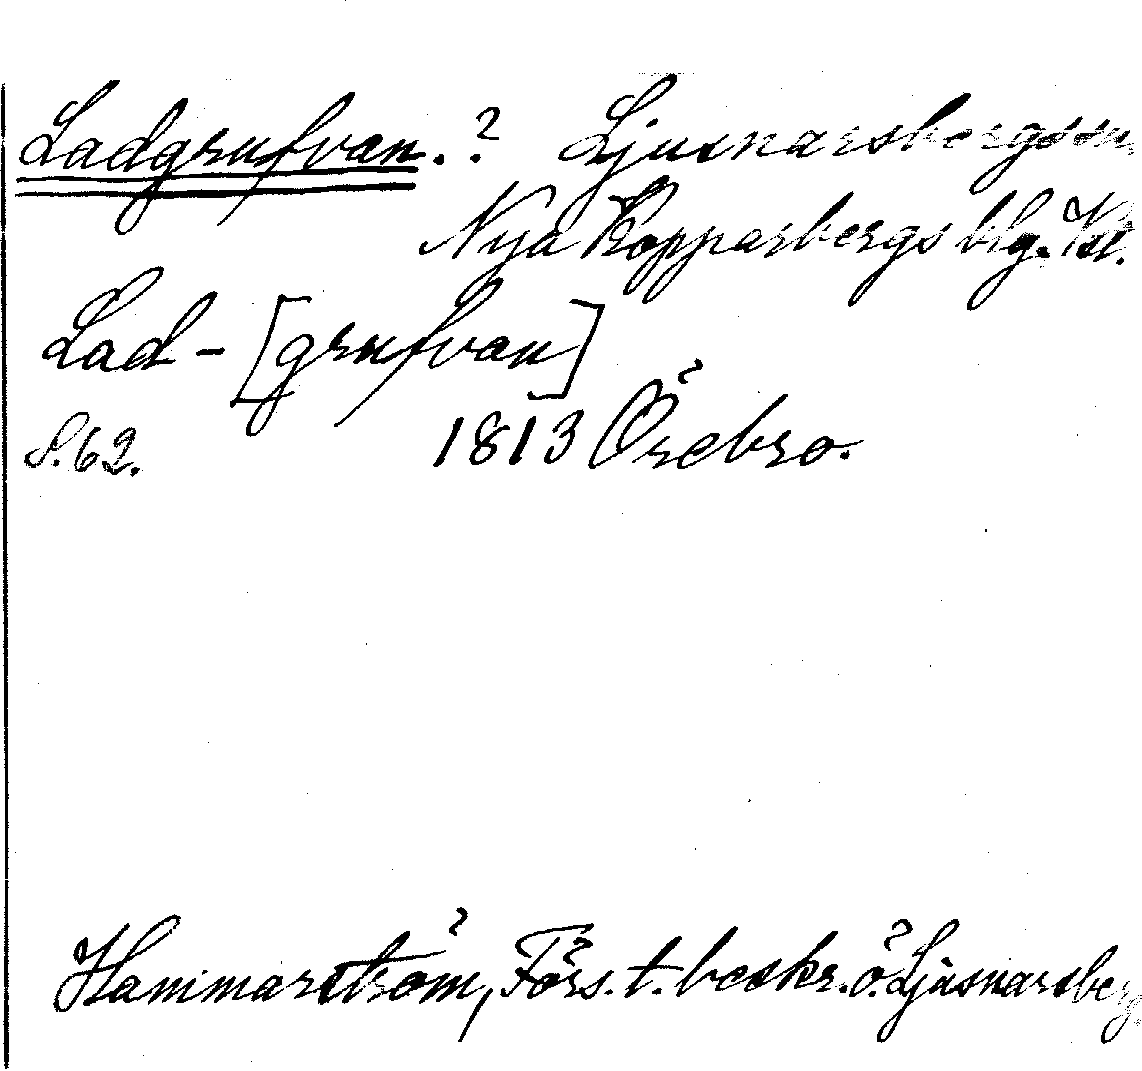 Ladgrufvan. ? Ljusnarsbergssn.
Nya Kopparbergs blg. Vstl.
Lad - [grufvan]
S. 62. 1813 Örebro.
Hammarström, Förs. t. beskr. ö. Ljusnarsberg.